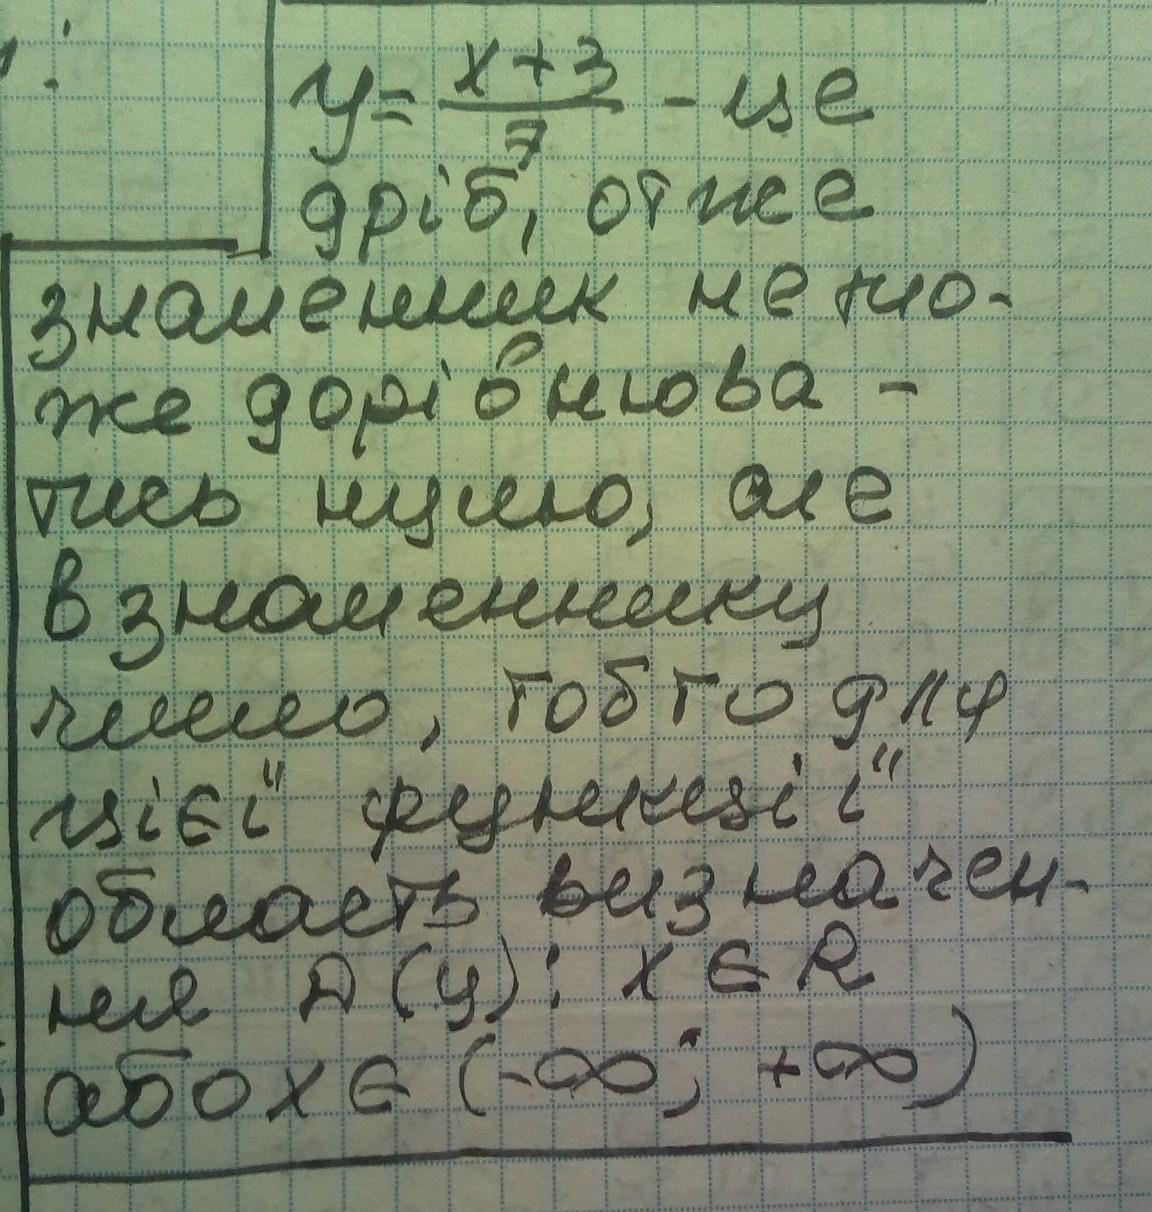 y = (x+3)/7 - це
дріб, отже
знаменник не мо-
же дорівнюва-
тись нулю, але
в знаменнику
число, тобто для
цієї функції
область визначен-
ня D(y): x ∈ R
або x ∈ (-∞; +∞)